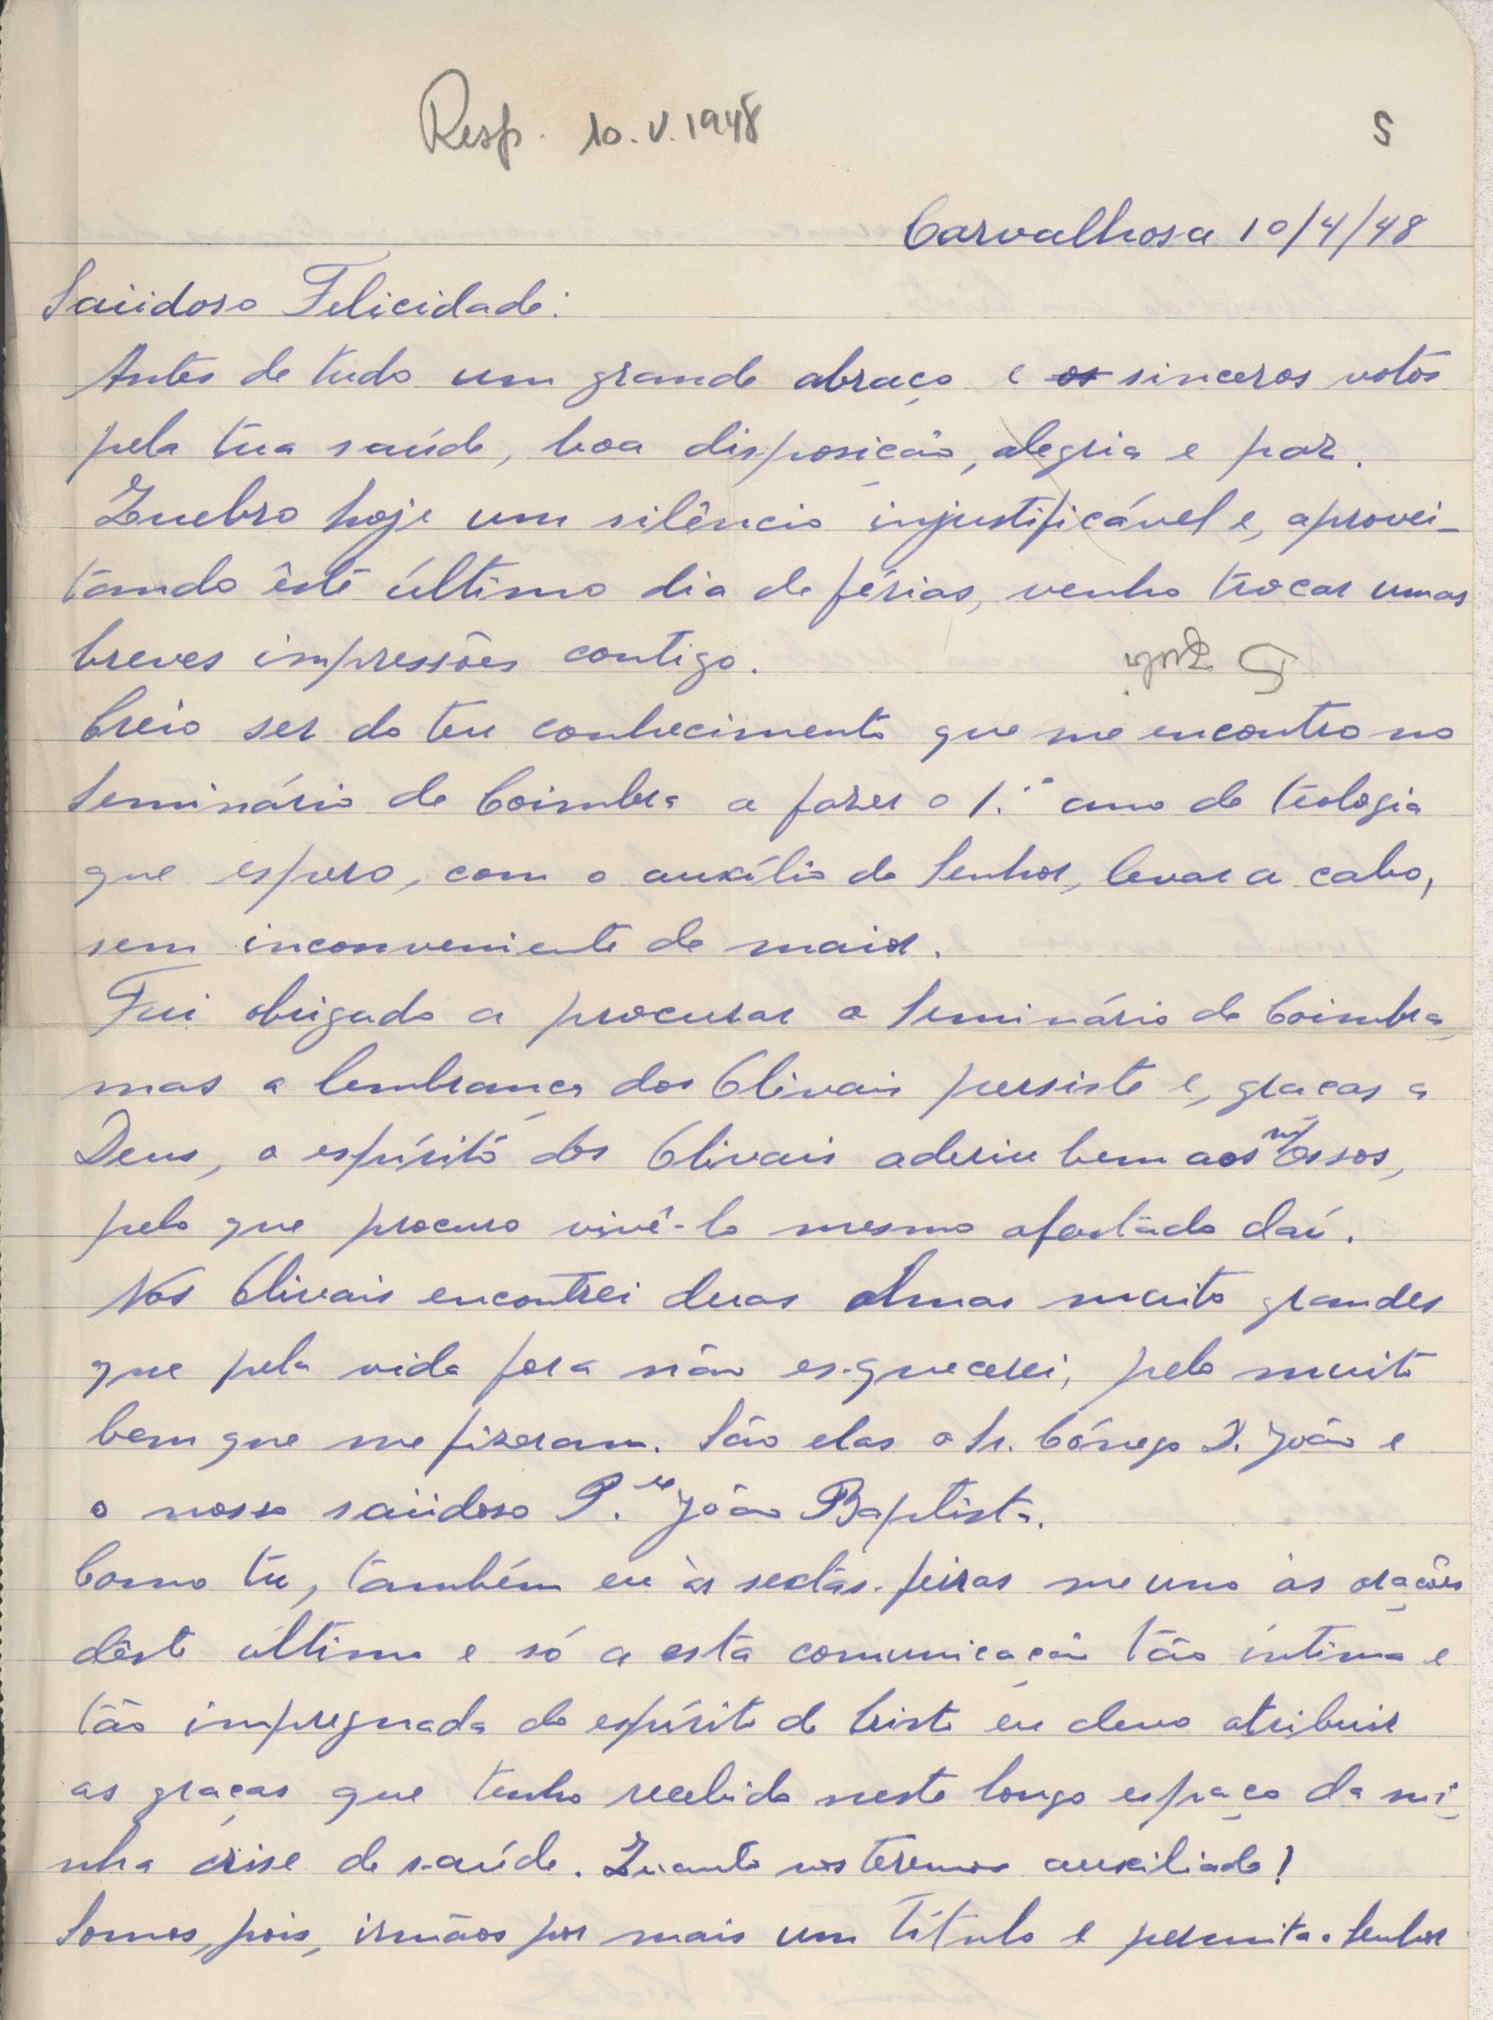 Resp. 10.V.1948
5
Carvalhosa 10/4/48
Saüdoso Felicidade:
Antes de tudo um grande abraço e os sinceros votos
pela tua saúde, boa disposição, alegria e paz.
Quebro hoje um silêncio injustificável e, aprovei-
tando êste último dia de férias, venho trocar umas
breves impressões contigo.
Creio ser do teu conhecimento que me encontro no
Seminário de Coimbra a fazer o 1.º ano de teologia
que espero, com o auxílio do Senhor, levar a cabo,
sem inconveniente de maior.
Fui obrigado a procurar o Seminário de Coimbra,
mas a lembrança dos Olivais persiste e, graças a
Deus, o espírito dos Olivais aderiu bem aos nossos,
pelo que procuro vivê-lo mesmo afastado daí.
Nos Olivais encontrei duas almas muito grandes
que pela vida fora não esquecerei, pelo muito
bem que me fizeram. São elas o Sr. Cónego D. João e
o nosso saüdoso P.e João Baptista.
Como tu, também eu às sextas-feiras me uno às orações
dêste último e só a esta comunicação tão íntima e
tão impregnada do espírito de Cristo eu devo atribuir
as graças que tenho recebido neste longo espaço da mi-
nha crise de saúde. Quanto nos teremos auxiliado!
Somos, pois, irmãos por mais um título e permita o Senhor